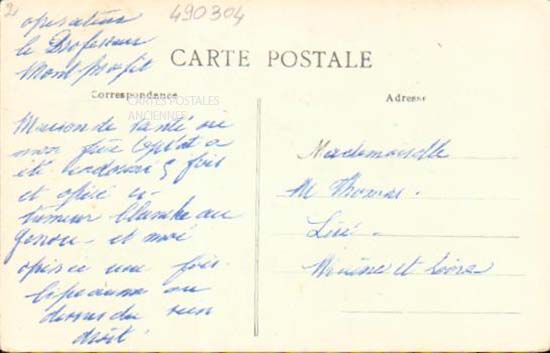 2
490304
opérateur
le Professeur
Montprofit
CARTE POSTALE
Correspondance
CARTES POSTALES
ANCIENNES
Adresse
Maison de santé où
mon père
été endormi 5 fois
et opéré
tumeur blanche au
genou - et moi
opérée une fois
au
dessus du sein
droit.
Mademoiselle
M Thomas.
Liré -
Maine et Loire